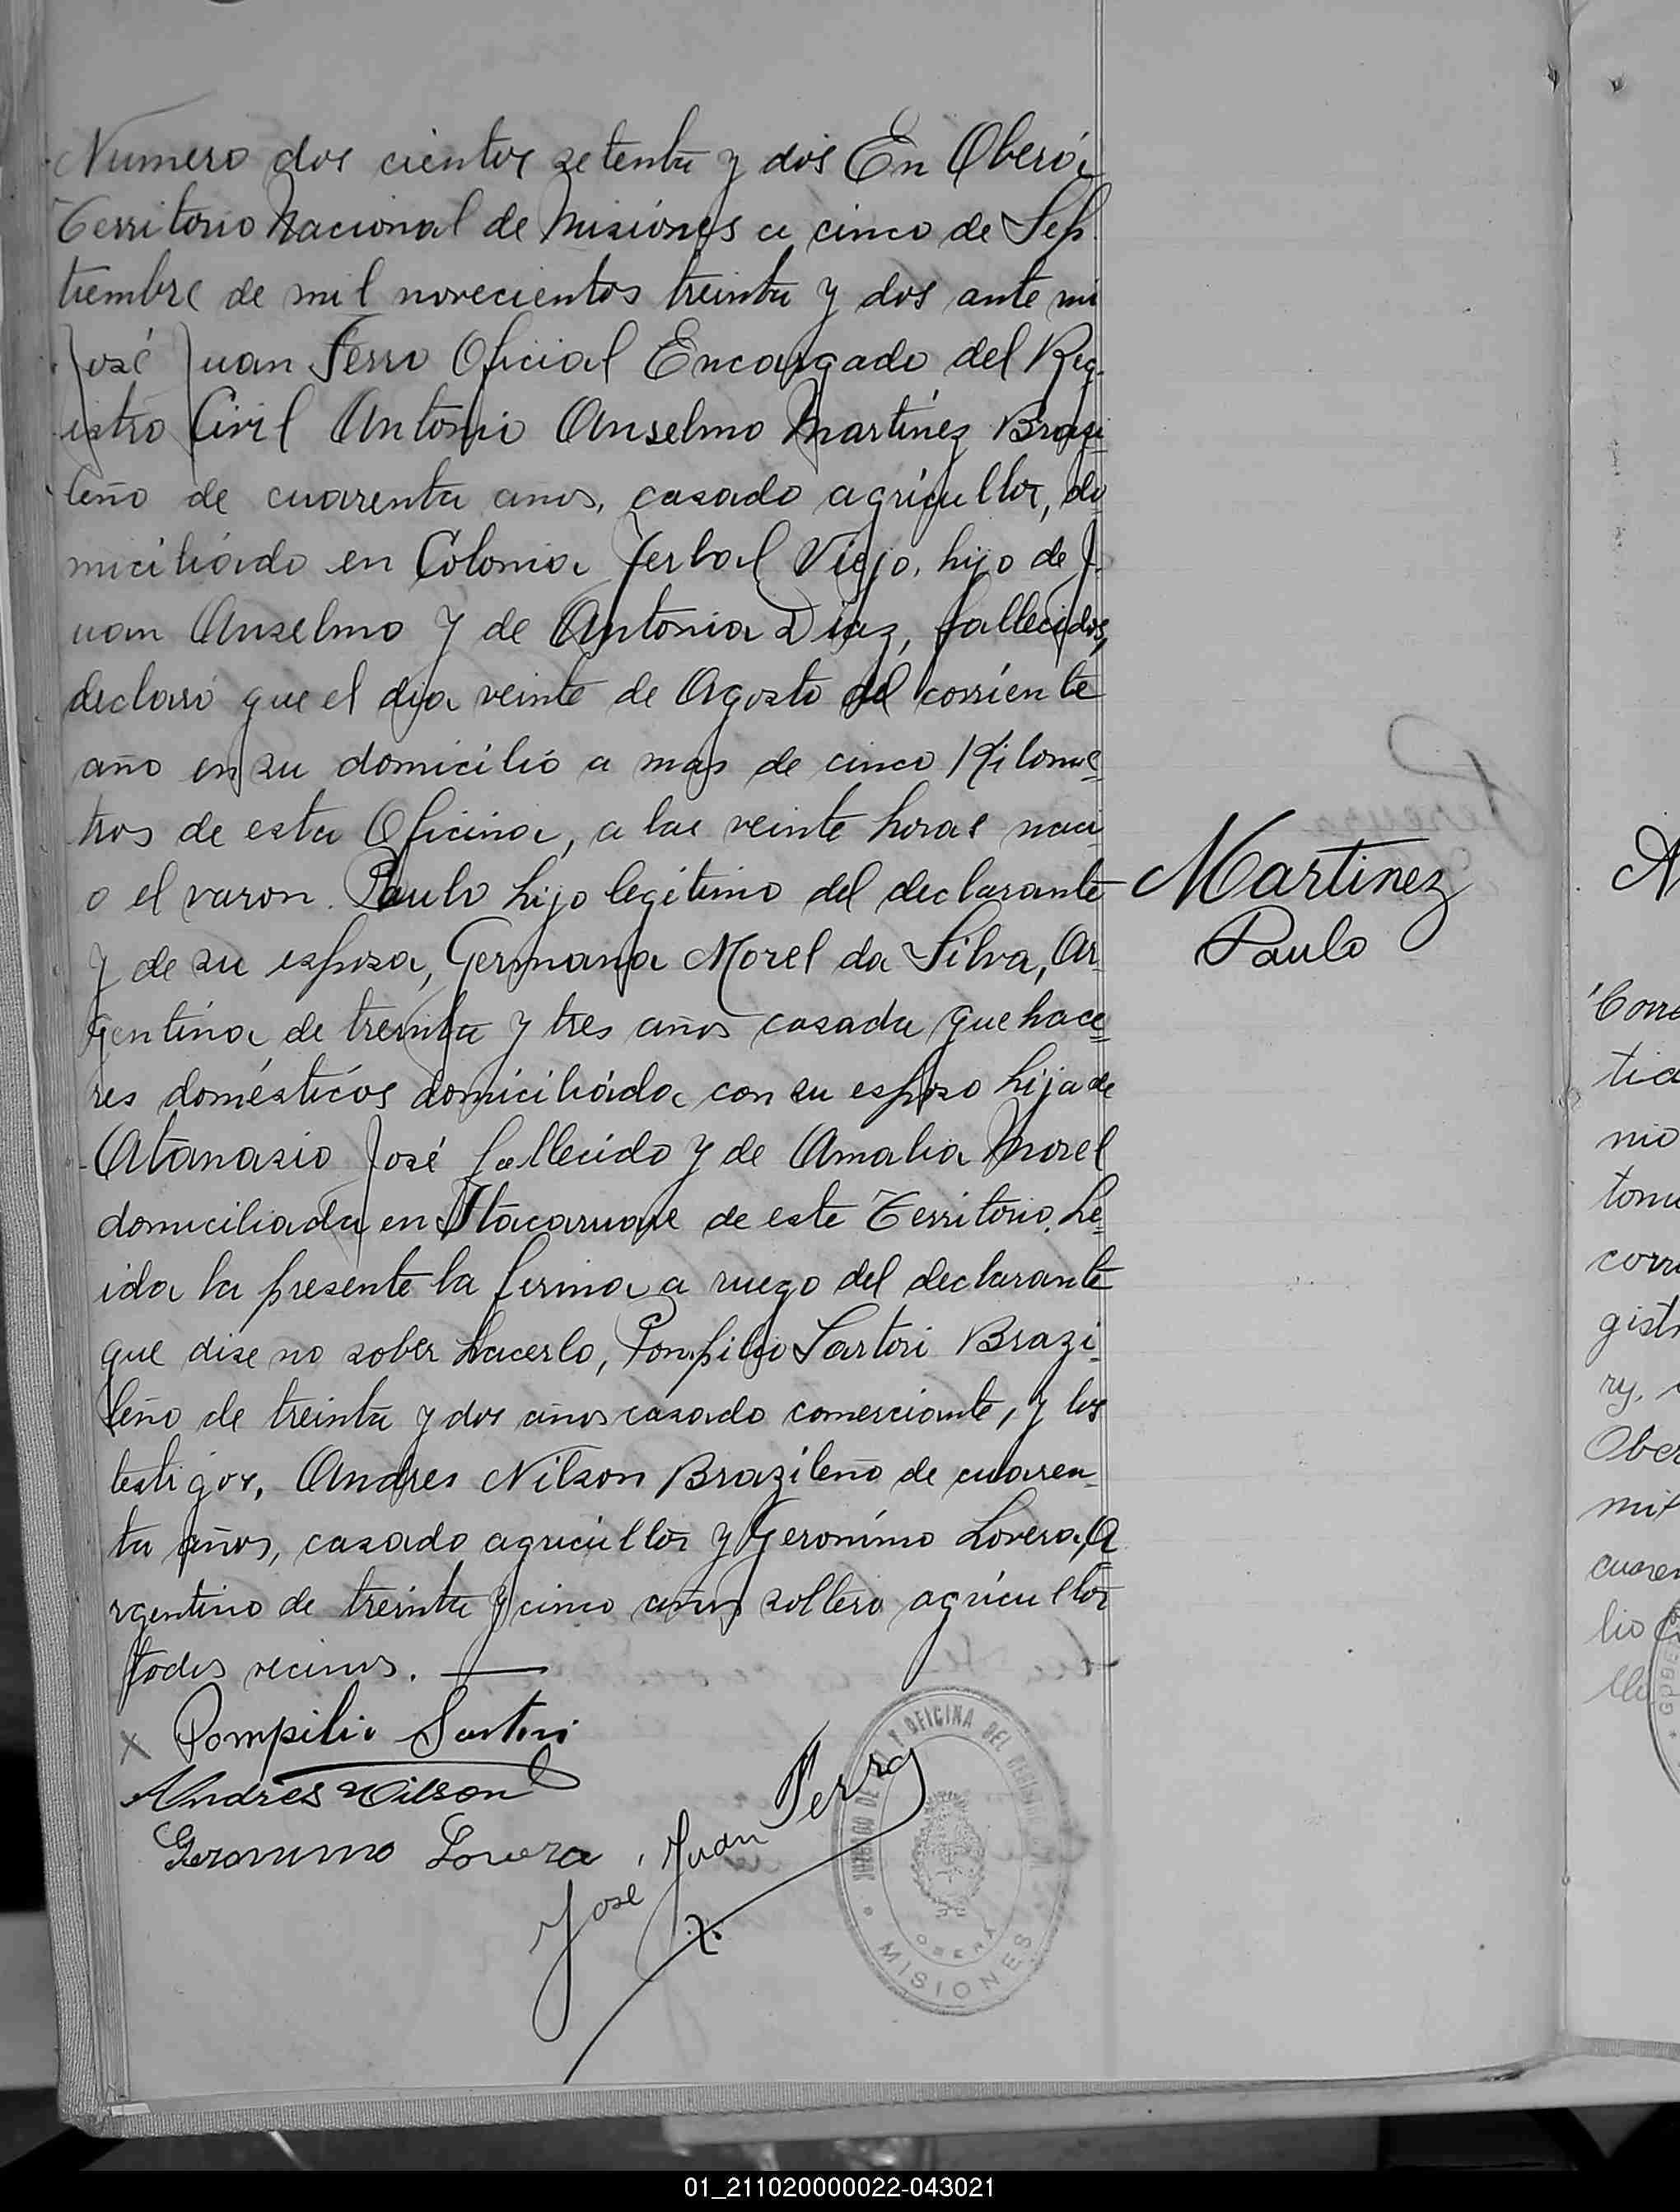 Numero dos cientos setenta y dos En Oberá
Territorio Nacional de Misiónes a cinco de Sep
tiembre de mil novecientos treinta y dos ante mi
José Juan Ferro Oficial Encargado del Reg-
istro Civil Antonio Anselmo Martínez Brazi
leño de cuarenta anos, casado agrícultor, do
miciliádo en Colonia Yerbal Viejo, hijo de J-
uan Anselmo y de Antonia Diaz, fallecidos,
declaró que el dia veinte de Agosto del corriente
año en su domicilió a mas de cinco Kilome
tros de esta Oficina, a las veinte horas naci
o el varon. Paulo hijo legítimo del declarante
y de su esposa, Germana Morel da Silva, Ar
gentina de treinta y tres años casada quehace
res domésticos domiciliáda con su esposo hija de
Atanasio José fallecido y de Amalia Morel
domiciliada en Itacaruare de este Territorio. Le
ida la presente la firma a ruego del declarante
que dise no saber hacerlo, Pompilio Sartori Brazi
leño de treinta y dos años casado comerciante, y los
testigos, Andres Nilson Brazileño de cuaren
ta años, casado agrícultor y Geronimo Lovera, A
rgentino de treinta y cinco años soltero agricultor
todos vecinos.
Martinez
Paulo
x Pompilio Sartori
Andrés Nilson
Geronimo Lovera
José Juan Ferro
JUZGADO DE Y OFICINA DEL
OBERÁ
MISIONES
A
Corre
tic
nio
tom
corr
gist
ry.
Ober
mil
cuaren
lio
01_211020000022-043021